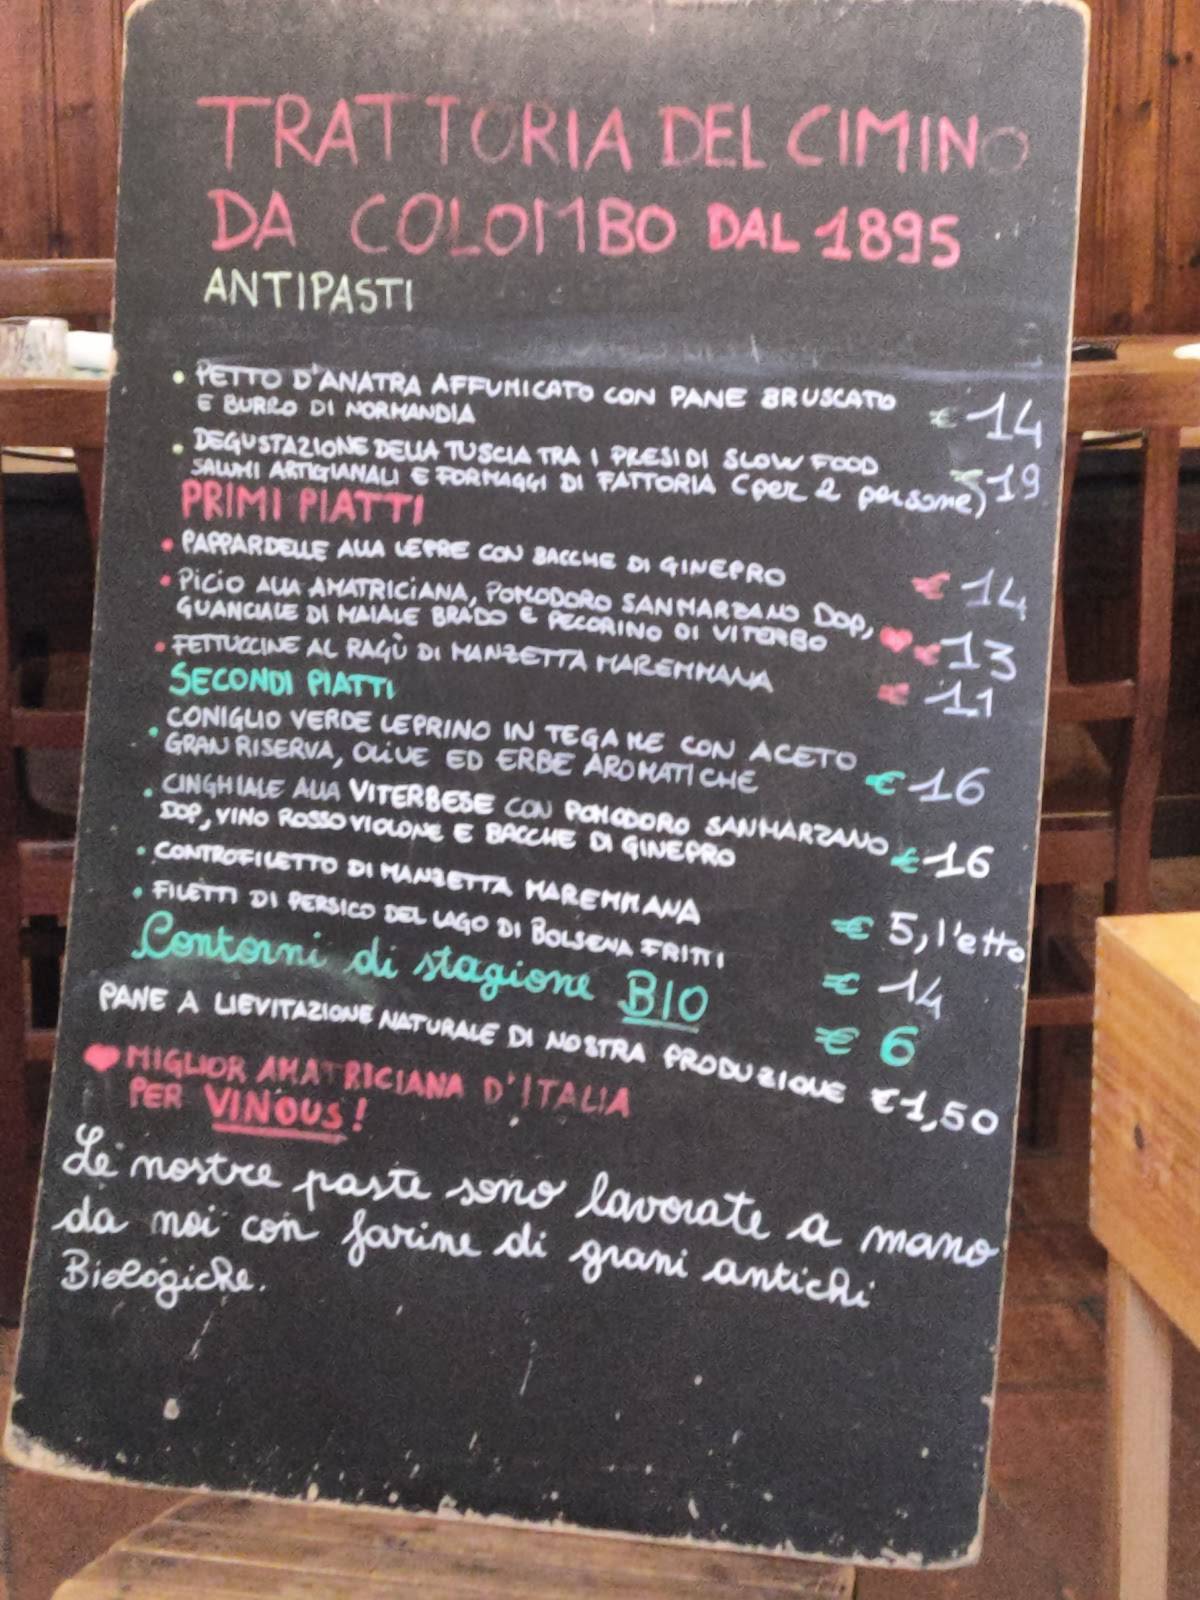 TRATTORIA DEL CIMINO
DA COLOMBO DAL 1895
ANTIPASTI
• PETTO D'ANATRA AFFUMICATO CON PANE BRUSCATO
E BURRO DI NORMANDIA € 14
• DEGUSTAZIONE DELLA TUSCIA TRA I PRESIDI SLOW FOOD
SALUMI ARTIGIANALI E FORMAGGI DI FATTORIA (per 2 persone) € 19
PRIMI PIATTI
• PAPPARDELLE ALLA LEPRE CON BACCHE DI GINEPRO € 14
• PICIO ALLA AMATRICIANA, POMODORO SANMARZANO DOP,
GUANCIALE DI MAIALE BRADO E PECORINO DI VITERBO ❤ € 13
• FETTUCCINE AL RAGÙ DI MANZETTA MAREMMANA € 11
SECONDI PIATTI
• CONIGLIO VERDE LEPRINO IN TEGAME CON ACETO
GRAN RISERVA, OLIVE ED ERBE AROMATICHE € 16
• CINGHIALE ALLA VITERBESE CON POMODORO SANMARZANO
DOP, VINO ROSSO VIOLONE E BACCHE DI GINEPRO € 16
• CONTROFILETTO DI MANZETTA MAREMMANA € 5, l'etto
• FILETTI DI PERSICO DEL LAGO DI BOLSENA FRITTI € 14
Contorni di stagione BIO € 6
PANE A LIEVITAZIONE NATURALE DI NOSTRA PRODUZIONE € 1,50
❤ MIGLIOR AMATRICIANA D'ITALIA
PER VINOUS!
Le nostre paste sono lavorate a mano
da noi con farine di grani antichi
Biologiche.